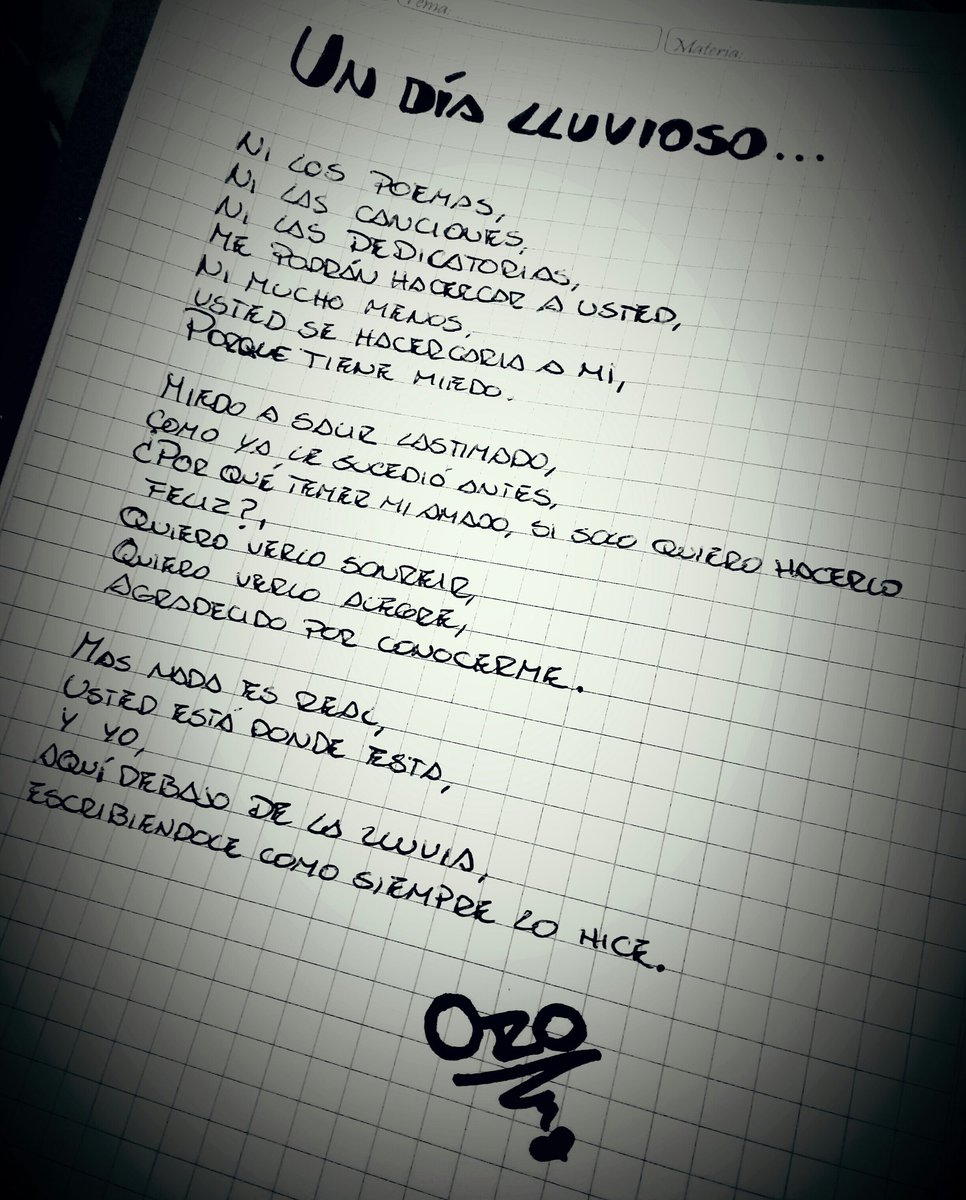 Tema:
Materia:
UN DÍA LLUVIOSO...
NI LOS POEMAS,
NI LAS CANCIONES,
NI LAS DEDICATORIAS,
ME PODRÁN HACERCAR A USTED,
NI MUCHO MENOS,
USTED SE HACERCARIA A MI,
PORQUE TIENE MIEDO.
MIEDO A SALIR LASTIMADO,
COMO YA LE SUCEDIÓ ANTES,
¿POR QUÉ TEMER MI AMADO, SI SOLO QUIERO HACERLO
FELIZ?,
QUIERO VERLO SONREIR,
QUIERO VERLO ALEGRE,
AGRADECIDO POR CONOCERME.
MAS NADA ES REAL,
USTED ESTÁ DONDE ESTA,
Y YO,
AQUÍ DEBAJO DE LA LLUVIA,
ESCRIBIENDOLE COMO SIEMPRE LO HICE.
OZO